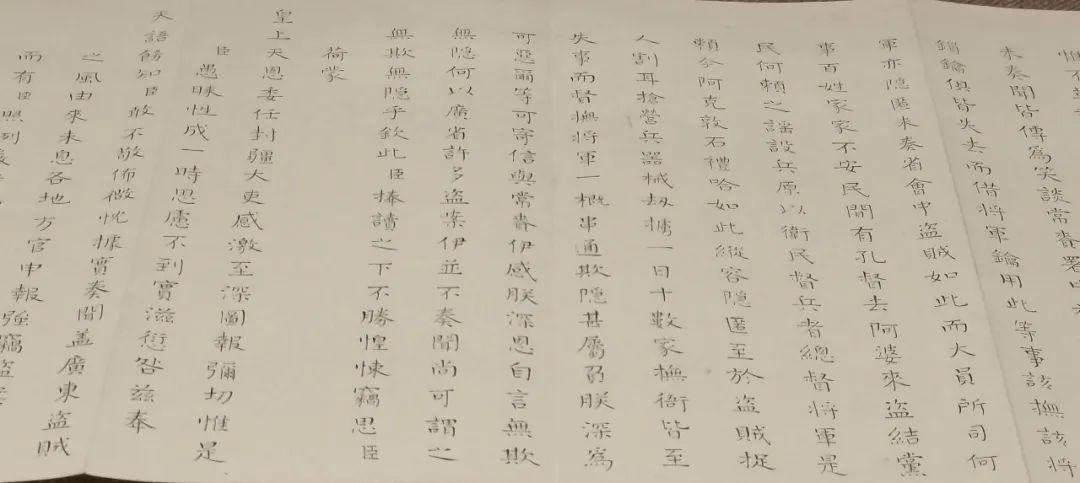 惟不
未奏聞皆傳為笑談常賚署中
鎖鑰俱皆失去而借將軍鑰用此等事該撫該將
軍亦隱匿未奏省會中盜賊如此而大員所司何
事百姓家家不安民間有孔督去阿婆來盜結黨
民何賴之謡設兵原以衛民督兵者總督將軍是
賴今阿克敦石禮哈如此縱容隱匿至於盜賊捉
人割耳搶營兵器械刼擄一日十數家撫衙皆至
失事而督撫將軍一概串通欺隱甚屬可朕深為
可惡爾等可寄信與常賚伊感朕深恩自言無欺
無隱何以廣省許多盜案伊並不奏聞尚可謂之
無欺無隱乎欽此臣捧讀之下不勝惶悚竊思臣
荷蒙
皇上天恩委任封疆大吏感激至深圖報彌切惟是
臣愚昧性成一時思慮不到實滋愆咎茲奉
天語飭知臣敢不敬佈微忱據實奏聞盖廣東盜賊
之風由來未息各地方官申報強竊盜
而有臣照列